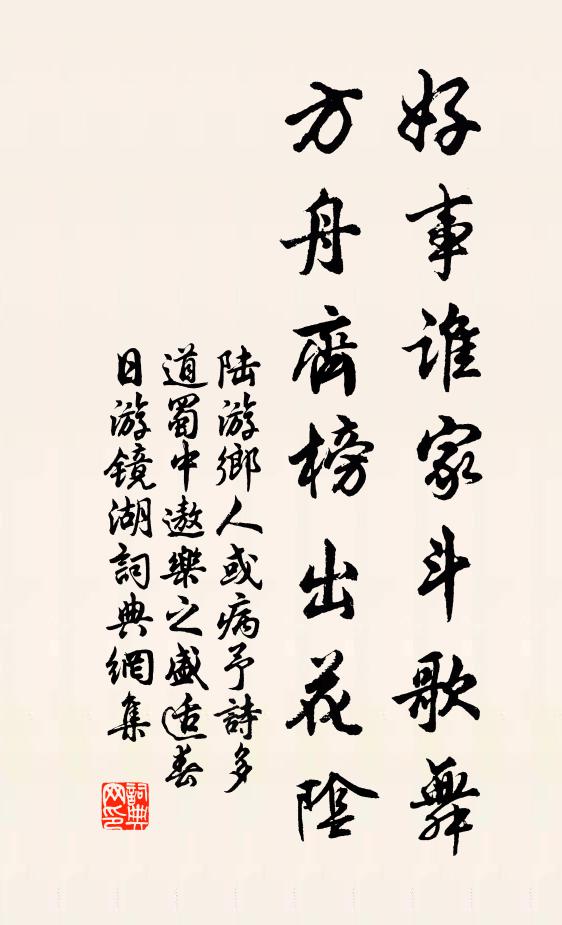 好事谁家斗歌舞
方舟齊榜出花陰
陆游鄉人或病予詩多
道蜀中遨樂之盛适春
日游镜湖詞典網集
詞典网印